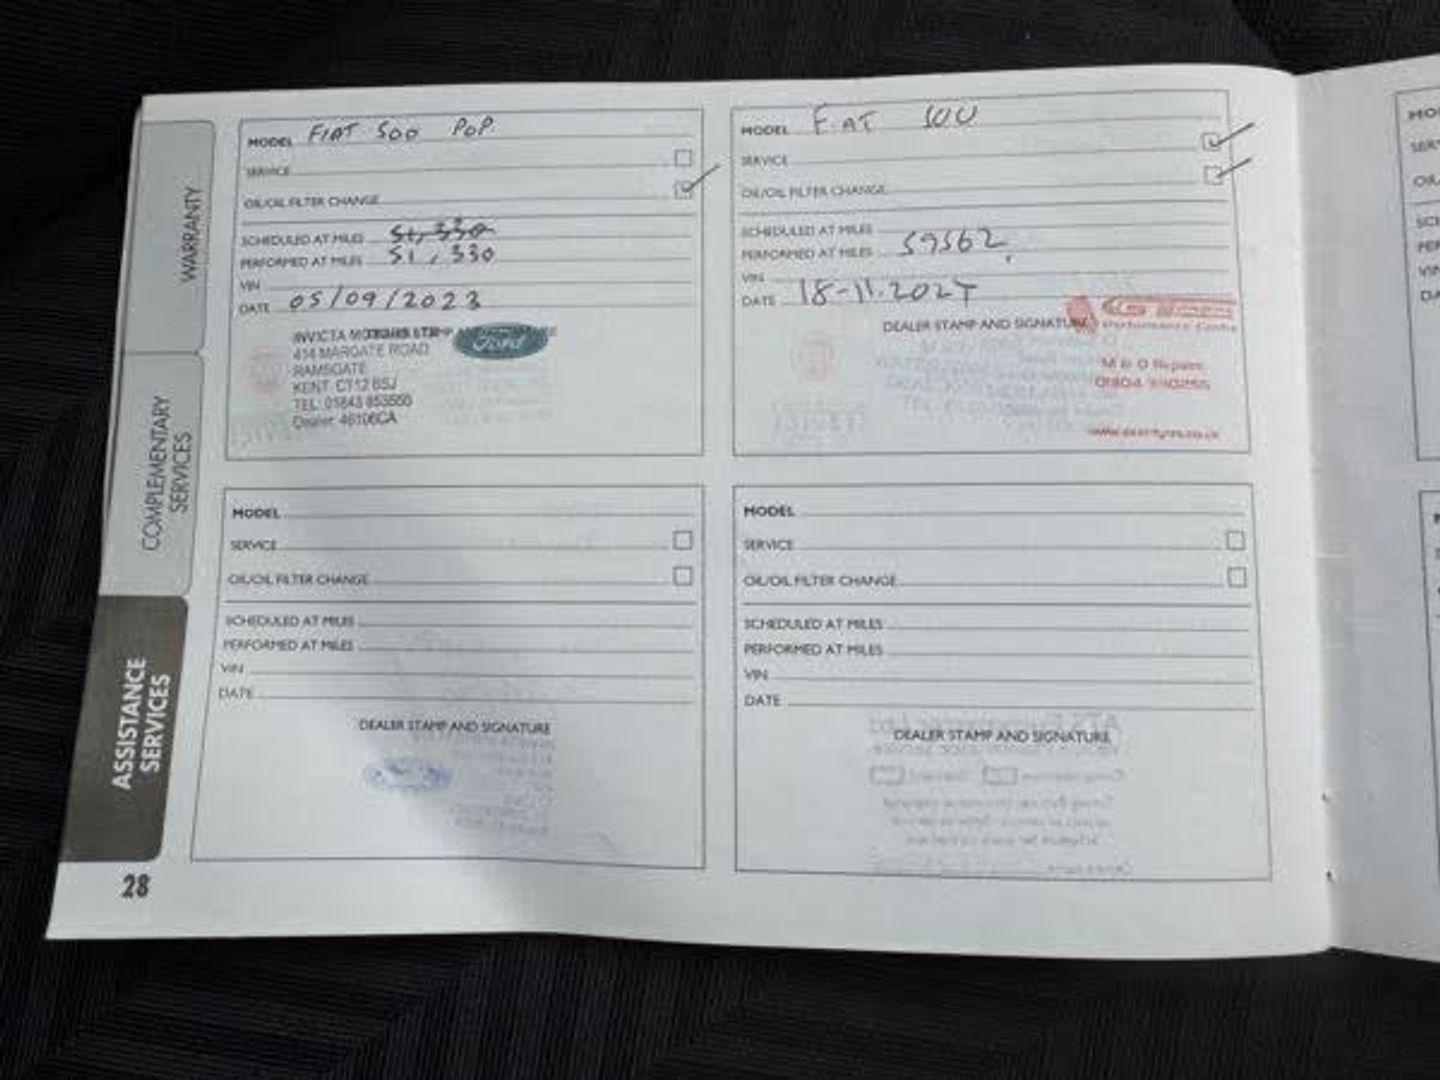 MODEL FIAT 500 POP
SERVICE
OIL/OIL FILTER CHANGE
SCHEDULED AT MILES 51,330
PERFORMED AT MILES 51,330
VIN
DATE 05/09/2023
INVICTA MOTORS LTD
414 MARGATE ROAD
RAMSGATE
KENT CT12 6SJ
TEL: 01843 853500
Dealer 46106CA
Ford
MODEL FIAT 500
SERVICE
OIL/OIL FILTER CHANGE
SCHEDULED AT MILES
PERFORMED AT MILES 59562
VIN
DATE 18-11-2024
DEALER STAMP AND SIGNATURE
Performance Centre
M & D Repairs
MODEL
SERVICE
OIL/OIL FILTER CHANGE
SCHEDULED AT MILES
PERFORMED AT MILES
VIN
DATE
DEALER STAMP AND SIGNATURE
MODEL
SERVICE
OIL/OIL FILTER CHANGE
SCHEDULED AT MILES
PERFORMED AT MILES
VIN
DATE
DEALER STAMP AND SIGNATURE
WARRANTY
COMPLEMENTARY
SERVICES
ASSISTANCE
SERVICES
28